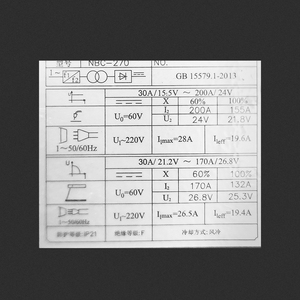 型号 NBC-270 NO.
1~ f1 f2 GB 15579.1-2013
30A/15.5V ~ 200A/24V
X 60% 100%
U₀=60V I₂ 200A 155A
U₂ 24V 21.8V
1~50/60Hz U₁=220V I₁max=28A I₁eff=19.6A
30A/21.2V ~ 170A/26.8V
X 60% 100%
U₀=60V I₂ 170A 132A
U₂ 26.8V 25.3V
1~50/60Hz U₁=220V I₁max=26.5A I₁eff=19.4A
防护等级:IP21 绝缘等级:F 冷却方式:风冷